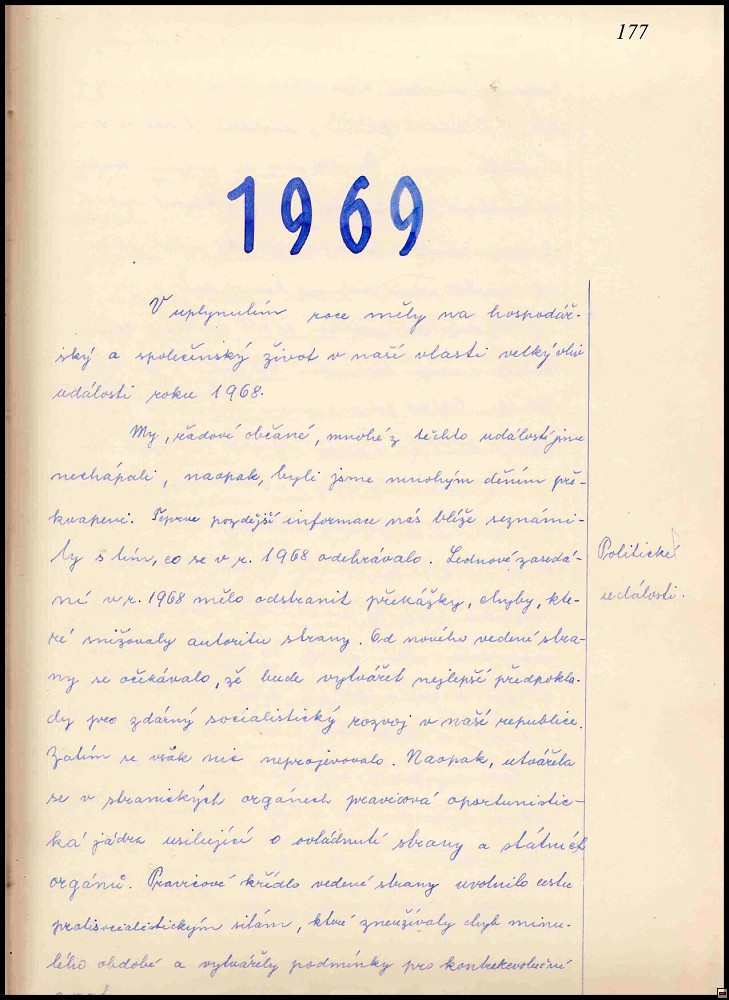 177
1969
V uplynulém roce měly na hospodář-
ský a společenský život v naší vlasti velký vliv
události roku 1968.
My, řadoví občané, mnohé z těchto událostí jsme
nechápali, naopak, byli jsme mnohým děním pře-
kvapeni. Teprve pozdější informace nás blíže seznámi-
ly s tím, co se v r. 1968 odehrávalo. Lednové zasedá-
Politické
ní v r. 1968 mělo odstranit překážky, chyby, kte-
události.
ré snižovaly autoritu strany. Od nového vedení stra-
ny se očekávalo, že bude vytvářet nejlepší předpokla-
dy pro zdárný socialistický rozvoj v naší republice.
Zatím se však nic neprojevovalo. Naopak, utvářela
se v stranických orgánech pravicová oportunistic-
ká jádra usilující o ovládnutí strany a státních
orgánů. Pravicové křídlo vedení strany uvolnilo cestu
protisocialistickým silám, které zneužívaly chyb minu-
lého období a vytvářely podmínky pro kontrarevoluční